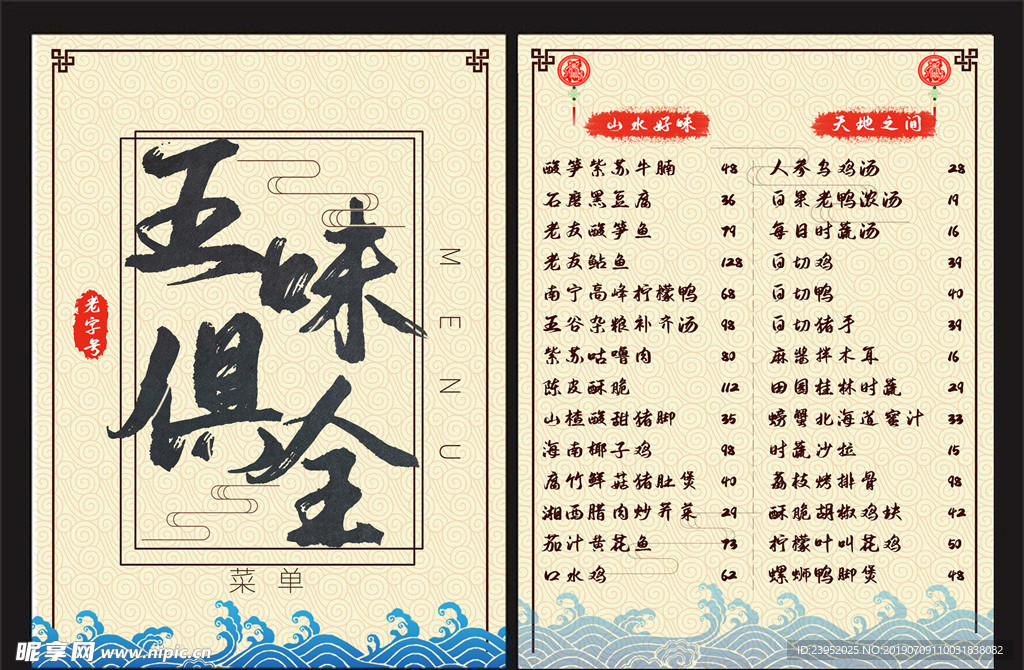 五味
俱全
老字号
MENU
菜单
山水好味
酸笋紫苏牛腩 48
石磨黑豆腐 36
老友酸笋鱼 79
老友鲇鱼 128
南宁高峰柠檬鸭 68
五谷杂粮补齐汤 98
紫苏咕噜肉 80
陈皮酥脆 112
山楂酸甜猪脚 35
海南椰子鸡 98
腐竹鲜菇猪肚煲 40
湘西腊肉炒荞菜 29
茄汁黄花鱼 73
口水鸡 62
天地之间
人参乌鸡汤 28
白果老鸭浓汤 19
每日时蔬汤 16
白切鸡 39
白切鸭 40
白切猪手 39
麻酱拌木耳 16
田园桂林时蔬 29
螃蟹北海道蜜汁 33
时蔬沙拉 15
荔枝烤排骨 98
酥脆胡椒鸡块 42
柠檬叶叫花鸡 50
螺蛳鸭脚煲 48
昵享网 www.nipic.cn
ID:23952025 NO:20190709110031838082